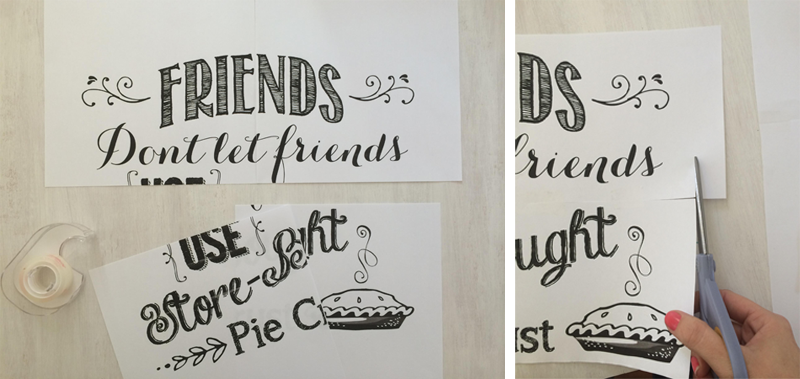 FRIENDS
Dont let friends
USE
USE
Store-Bght
Pie C
DS
friends
ught
st